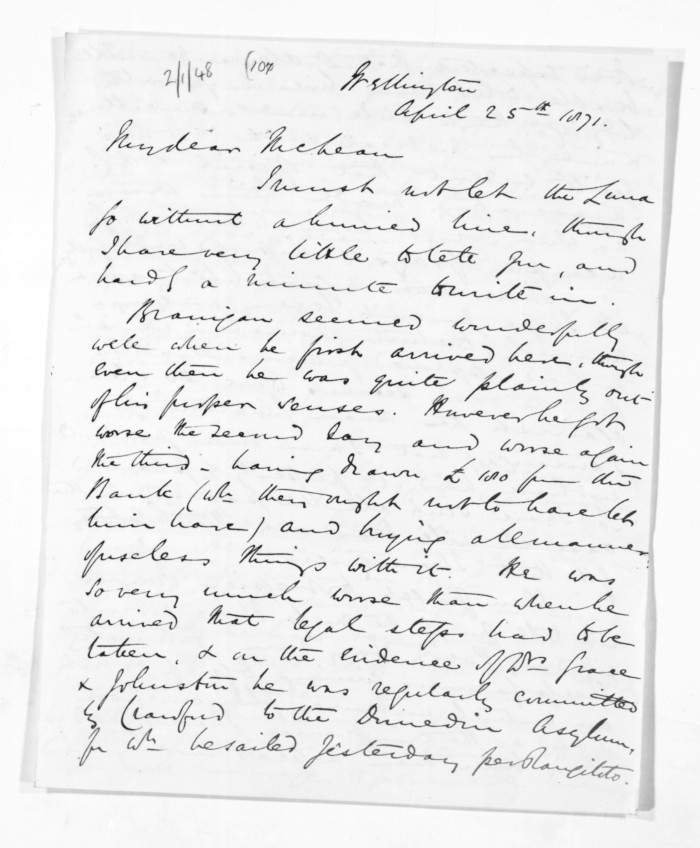 2/1/48 (107
Wellington
April 25th 1871.
My dear McLean
I must not let the Luna
go without a hurried line, though
I have very little to tell you, and
hardly a minute to write in.
Branigan seemed wonderfully
well when he first arrived here, though
even then he was quite plainly out
of his proper senses. However he got
worse the second day and worse again
the third - having drawn £100 from the
Bank (wh they ought not to have let
him have) and buying all manner
of useless things with it. He was
so very much worse than when he
arrived that legal steps had to be
taken, & on the evidence of Drs Grace
& Johnston he was regularly committed
by Crawford to the Dunedin Asylum,
for wh he sailed yesterday per Rangitoto.